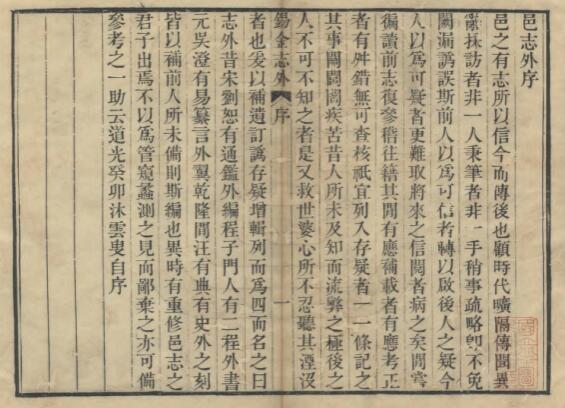 邑志外序
邑之有志所以信今而傳後也顧時代曠隔傳聞異
辭採訪者非一人秉筆者非一手稍事疏略卽不免
闕漏譌誤斯前人以爲可信者轉以啟後人之疑今
人以爲可疑者更難取將來之信閱者病之矣閒嘗
徧讀前志復參稽往籍其閒有應補載者有應考正
者有舛錯無可查核祇宜列入存疑者一一條記之
其事關閭閻疾苦昔人所未及知而流弊之極後之
人不可不知之者是又救世婆心所不忍聽其湮沒
錫金志外 序 一
者也爰以補遺訂譌存疑增輯列而爲四而名之曰
志外昔宋劉恕有通鑑外編程子門人有二程外書
元吳澄有易纂言外翼乾隆閒汪有典有史外之刻
皆以補前人所未備則斯編也異時有重修邑志之
君子出焉不以爲管窺蠡測之見而鄙棄之亦可備
參考之一助云道光癸卯沐雲叟自序